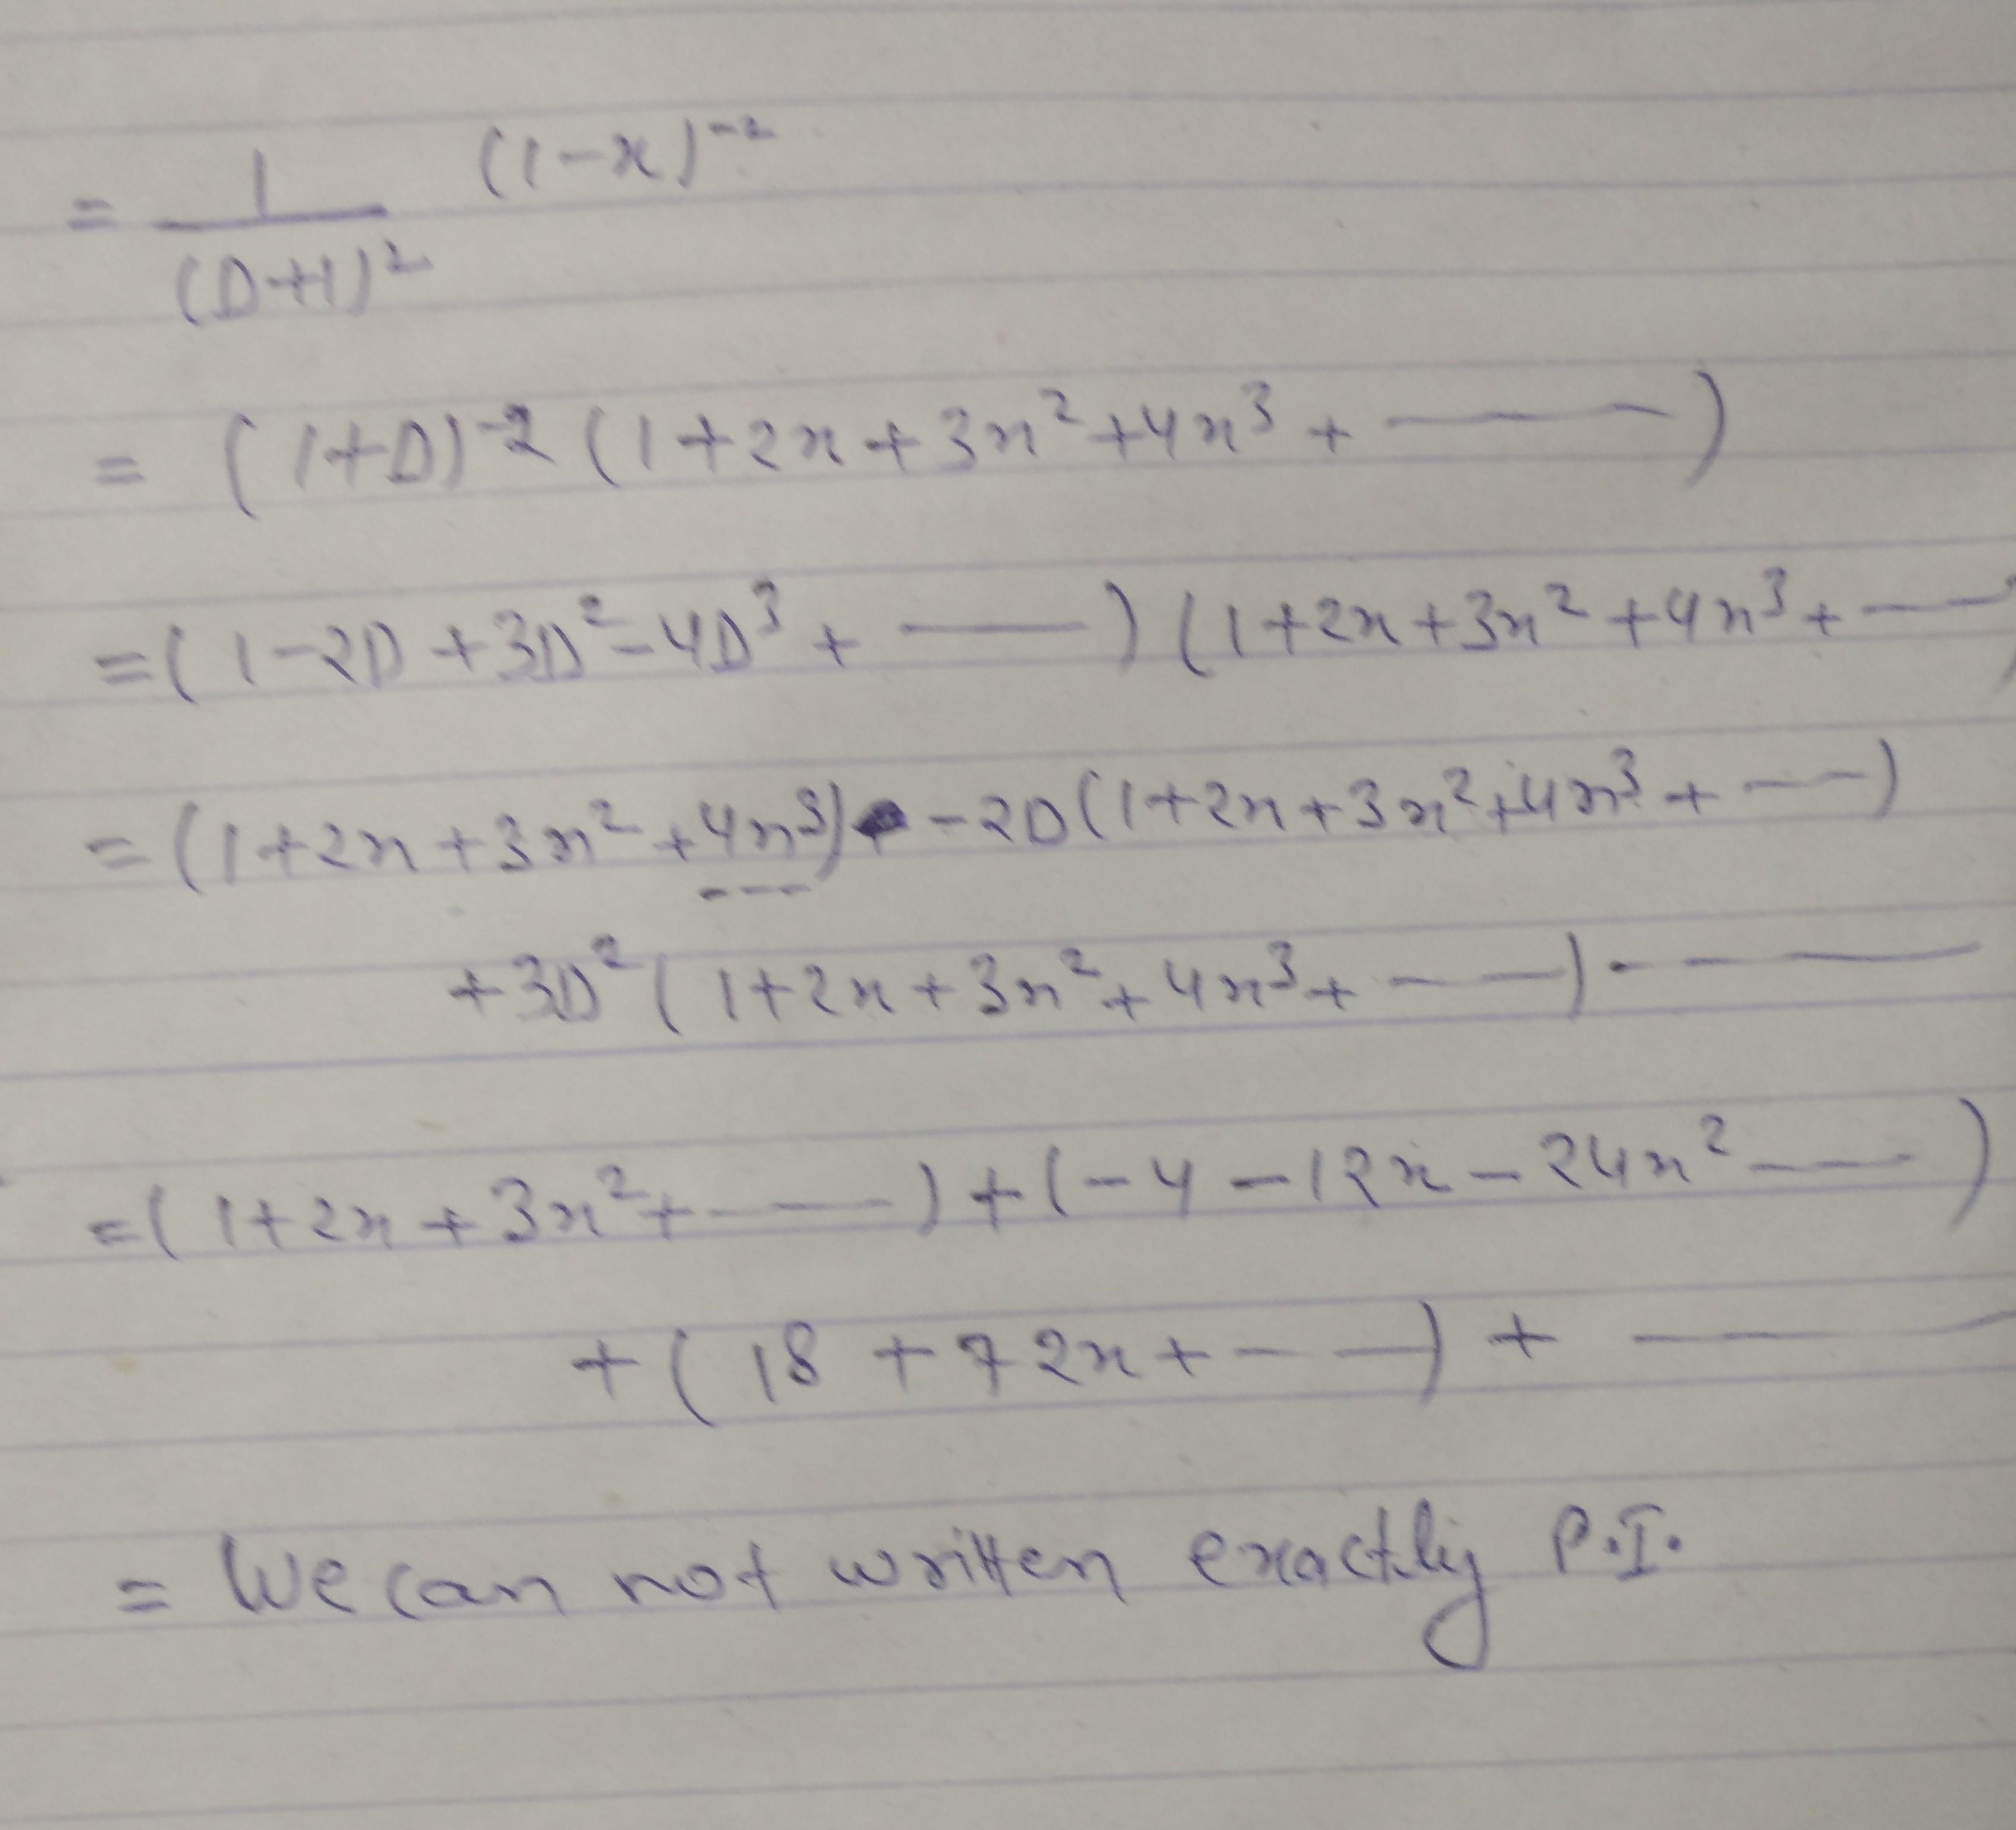 = 1/(D+1)² (1-x)⁻²
= (1+D)⁻² (1+2x+3x²+4x³+ ——— )
= (1-2D+3D²-4D³+ ——— ) (1+2x+3x²+4x³+ ——— )
= (1+2x+3x²+4x³ ---) -2D(1+2x+3x²+4x³+ —— )
+3D² (1+2x+3x²+4x³+ — — ) - — ——
= (1+2x+3x²+ - —— ) + (-4-12x-24x² — —— )
+ (18+72x+ - — ) + — — —
= We can not written exactly P.I.